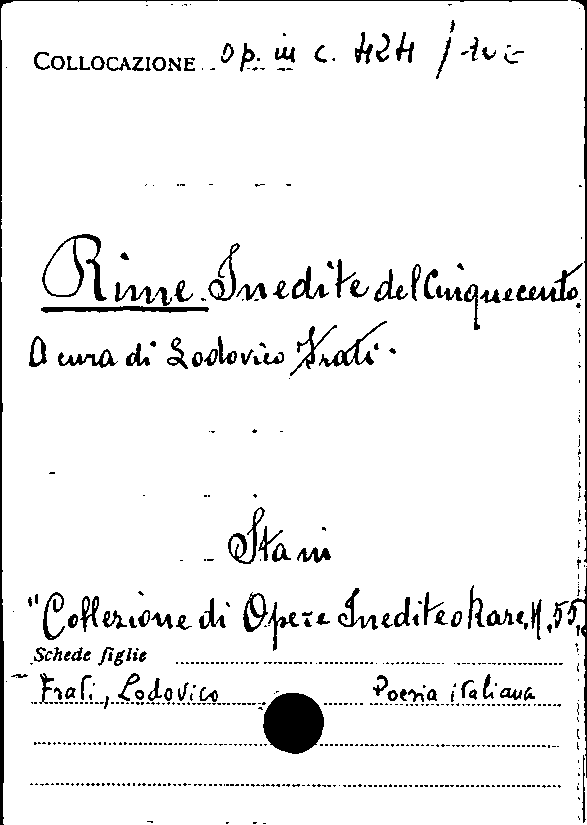 COLLOCAZIONE op. in c. 424 /
Rime Inedite del Cinquecento.
A cura di Lodovico Frati.
"Collezione di Opere Inedite o Rare, N. 55,
Schede figlie
Frati, Lodovico Poesia italiana